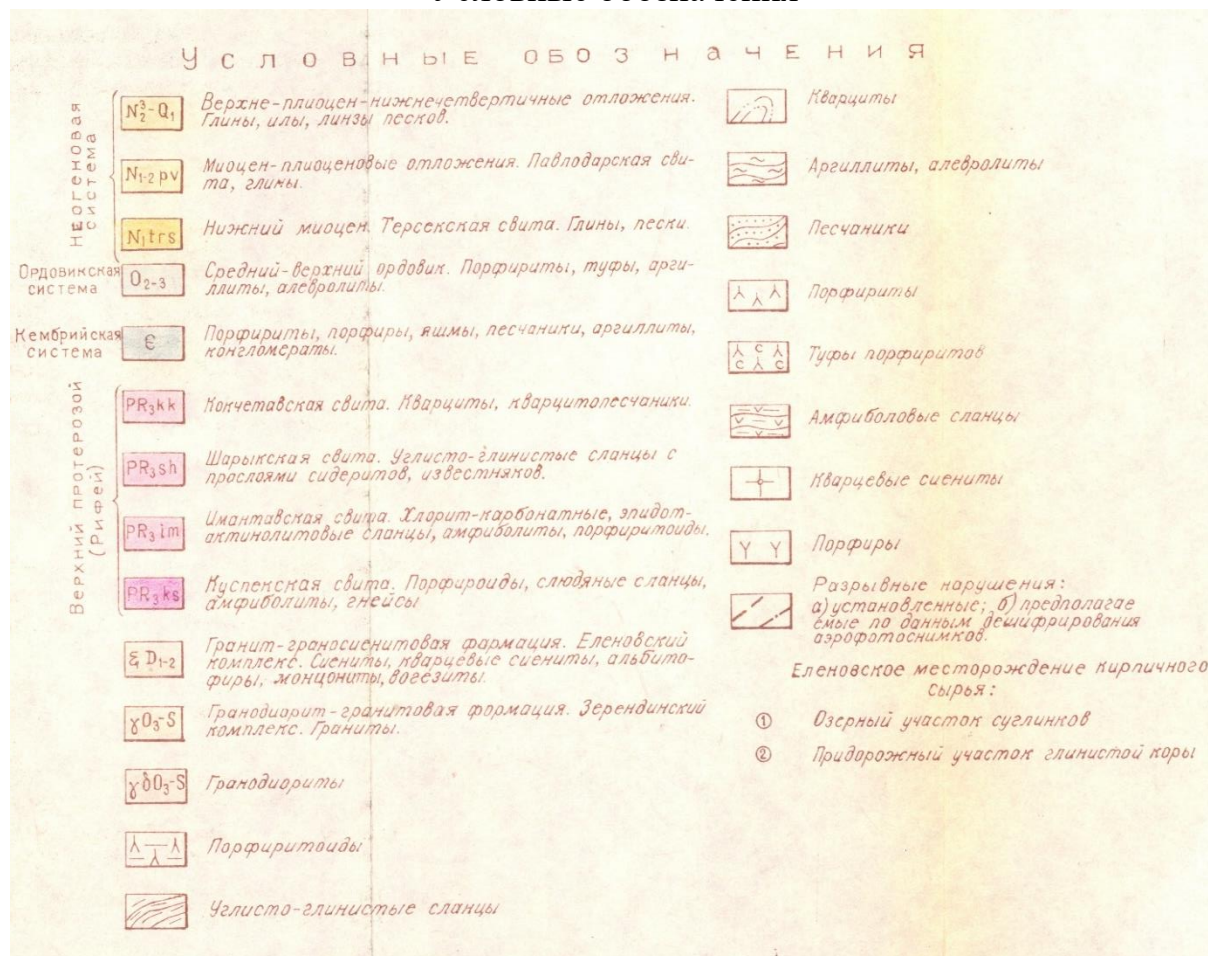 Условные обозначения
Неогеновая система
N₂³-Q₁
Верхне-плиоцен-нижнечетвертичные отложения.
Глины, илы, линзы песков.
N₁₋₂ pv
Миоцен-плиоценовые отложения. Павлодарская сви-
та, глины.
N₁trs
Нижний миоцен. Терсекская свита. Глины, пески.
Ордовикская
система
O₂₋₃
Средний-верхний ордовик. Порфириты, туфы, арги-
ллиты, алевролиты.
Кембрийская
система
Є
Порфириты, порфиры, яшмы, песчаники, аргиллиты,
конгломераты.
Верхний протерозой
(Рифей)
PR₃kk
Кокчетавская свита. Кварциты, кварцитопесчаники.
PR₃sh
Шарыкская свита. Углисто-глинистые сланцы с
прослоями сидеритов, известняков.
PR₃im
Имантавская свита. Хлорит-карбонатные, эпидот-
актинолитовые сланцы, амфиболиты, порфиритоиды.
PR₃ks
Куспекская свита. Порфироиды, слюдяные сланцы,
амфиболиты, гнейсы
ξD₁₋₂
Гранит-граносиенитовая формация. Еленовский
комплекс. Сиениты, кварцевые сиениты, альбито-
фиры, монцониты, вогезиты.
γO₃-S
Гранодиорит-гранитовая формация. Зерендинский
комплекс. Граниты.
γδO₃-S
Гранодиориты
Порфиритоиды
Углисто-глинистые сланцы
Кварциты
Аргиллиты, алевролиты
Песчаники
Порфириты
С
С С
Туфы порфиритов
Амфиболовые сланцы
Кварцевые сиениты
Порфиры
Разрывные нарушения:
а) установленные; б) предполагае
емые по данным дешифрирования
аэрофотоснимков.
Еленовское месторождение кирпичного
сырья:
① Озерный участок суглинков
② Придорожный участок глинистой коры